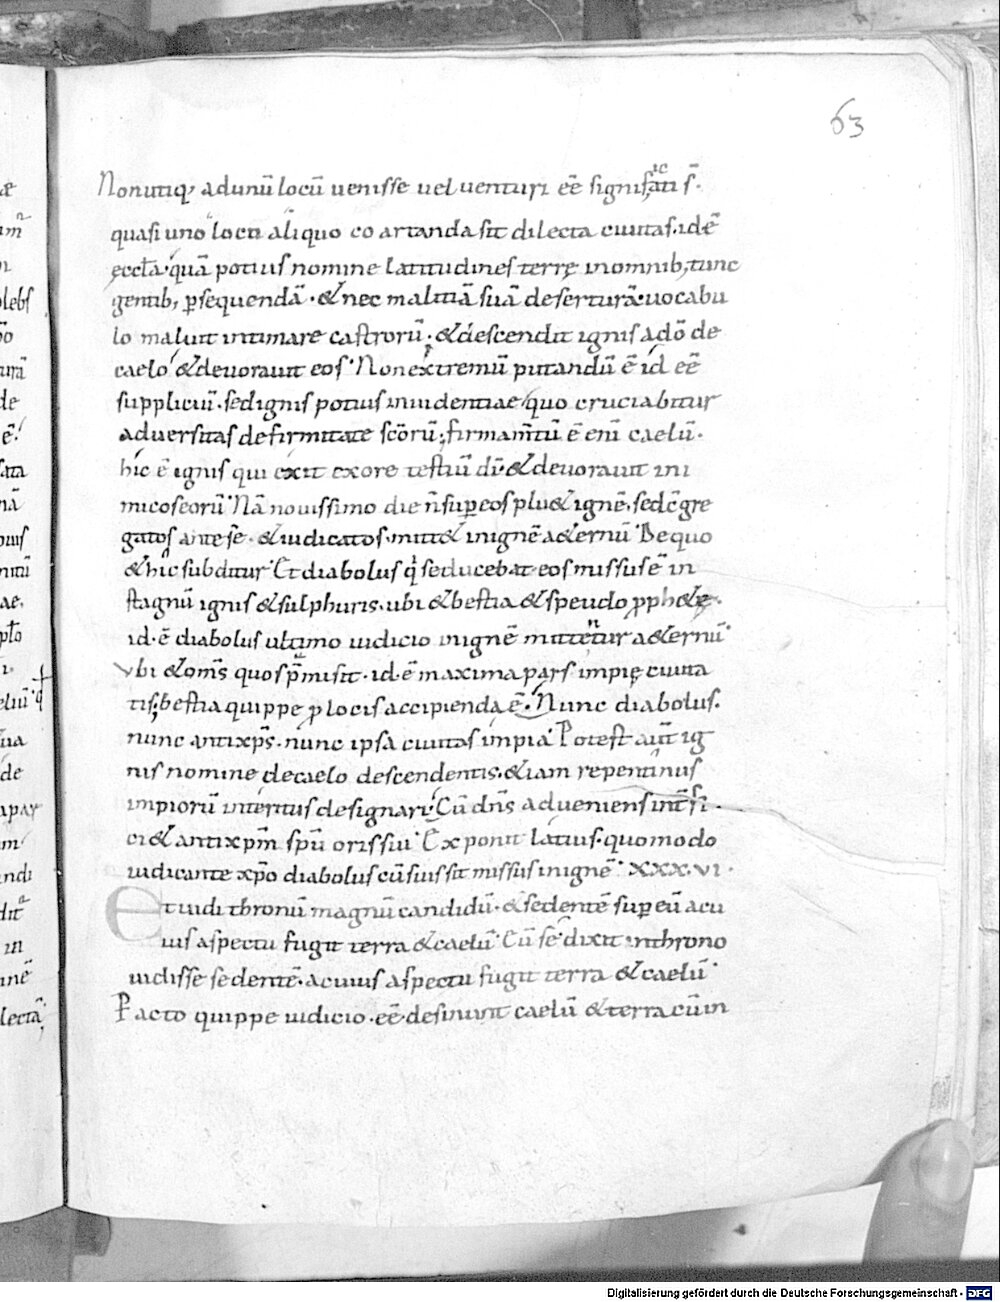 63
Non utiq; ad unū locū uenisse uel uenturi eē signifi͑cati s̄.
quasi uno loco aliquo coartanda sit dilecta ciuitas. id ē
ęccła. quā potius nomine latitudines terrę in omnib; tunc
gentib; ꝑsequendā. & nec malitiā suā deserturā. uocabu
lo maluit intimare castrorū. & descendit ignis a dō de
caelo & deuorauit eos. Non extremū putandū ē id eē
suppliciū. sed ignis potius inuidentiae quo cruciabitur
aduersitas de firmitate scōrū; firmam̄tū ē eni caelū.
hic ē ignis qui exit ex ore testiū dī & deuorauit ini
micos eorū. Nā nouissimo die n̄ sup eos plu& ignē. sed c̄gre
gatos ante sē. & iudicatos. mitt& in ignē a&ernū. De quo
& hic subditur. Et diabolus q̇ seducebat eos missus ē in
stagnū ignis & sulphuris. ubi & bestia & speudo ꝓph&ę.
id. ē diabolus ultimo iudicio in ignē mitt&ur a&ernū.
Vbi & om̄s quos p̄misit. id. ē maxima pars impię ciuita
tis; bestia quippe ꝓ locis accipienda ē. Nunc diabolus.
nunc antixp̄s. nunc ipsa ciuitas impia. Potest aūt ig
nis nomine de caelo descendentis. &iam repentinus
impiorū interitus designari. Cū dn̄s adueniens int̄fi
ci& antixp̄m spū oris sui. Exponit latius. quomodo
iudicante xp̄o diabolus cū suis sit missus in ignē. XXX.VI.
Et uidi thronū magnū candidū. & sedentē sup eū a cu
ius aspectu fugit terra & caelū. Cū sē dixit in throno
uidisse sedentē. a cuius aspectu fugit terra & caelū.
Pacto quippe iudicio. eē desinunt caelū & terra cū in
Digitalisierung gefördert durch die Deutsche Forschungsgemeinschaft - DFG